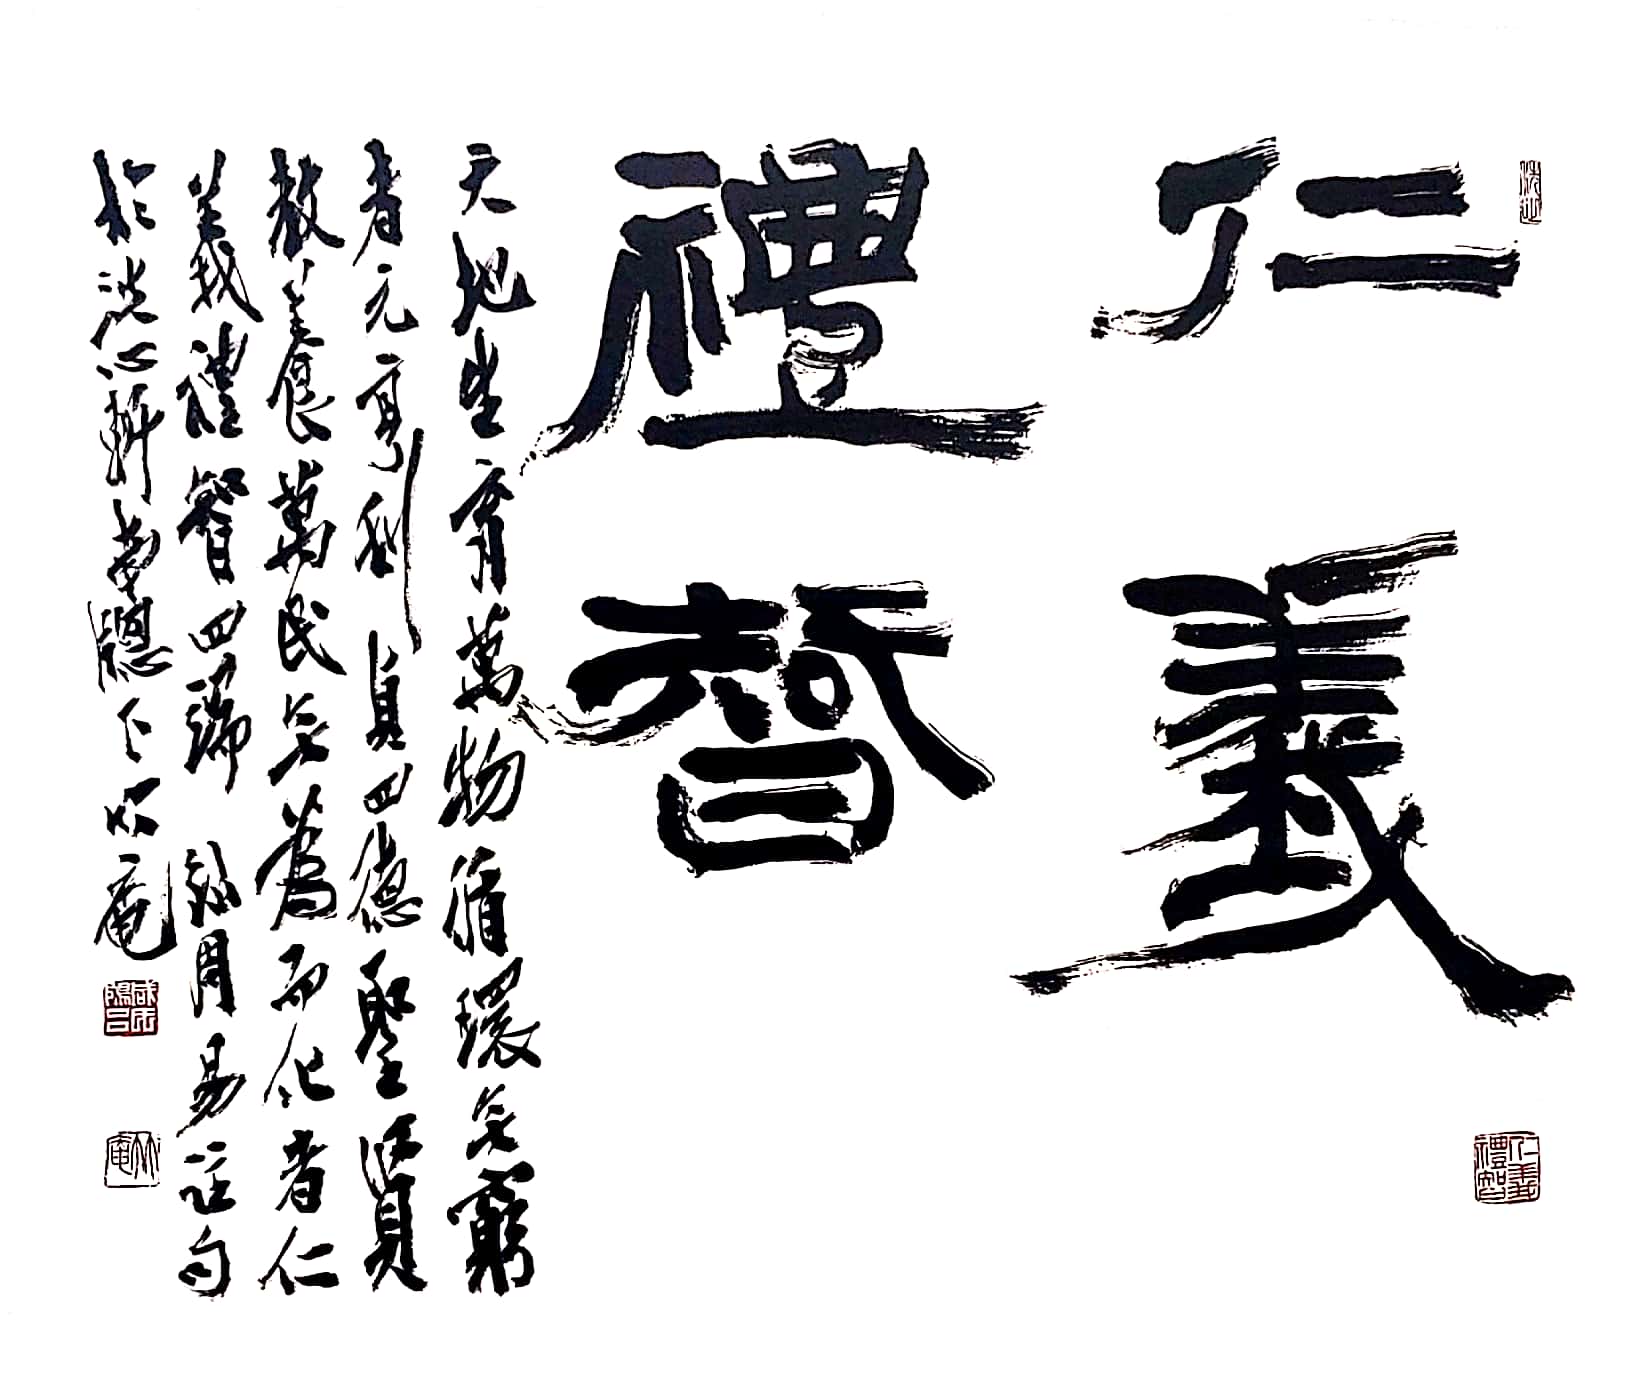 仁義
禮智
天地生育萬物循環无窮
者元亨利貞四德聖賢
教養萬民无為而化者仁
義禮智四端 錄周易註句
於洗心軒南窓下 竹庵
仁義禮智
竹庵